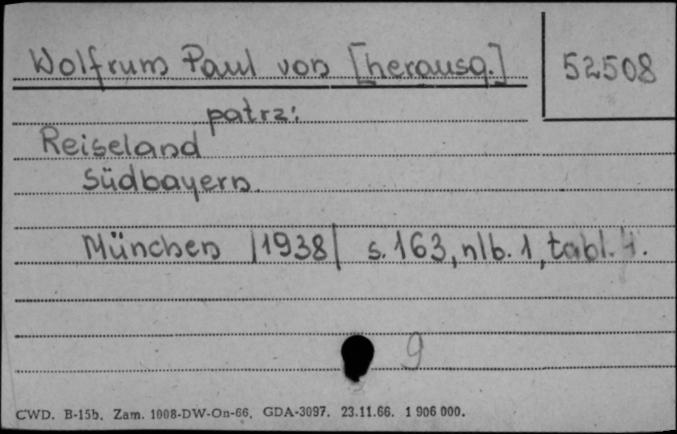 Wolfrum Paul von [herausg.]
52508
patrz:
Reiseland
Südbayern.
München |1938| s. 163, nlb. 1, tabl. 4.
9
CWD. B-15b. Zam. 1008-DW-On-66. GDA-3097. 23.11.66. 1 906 000.